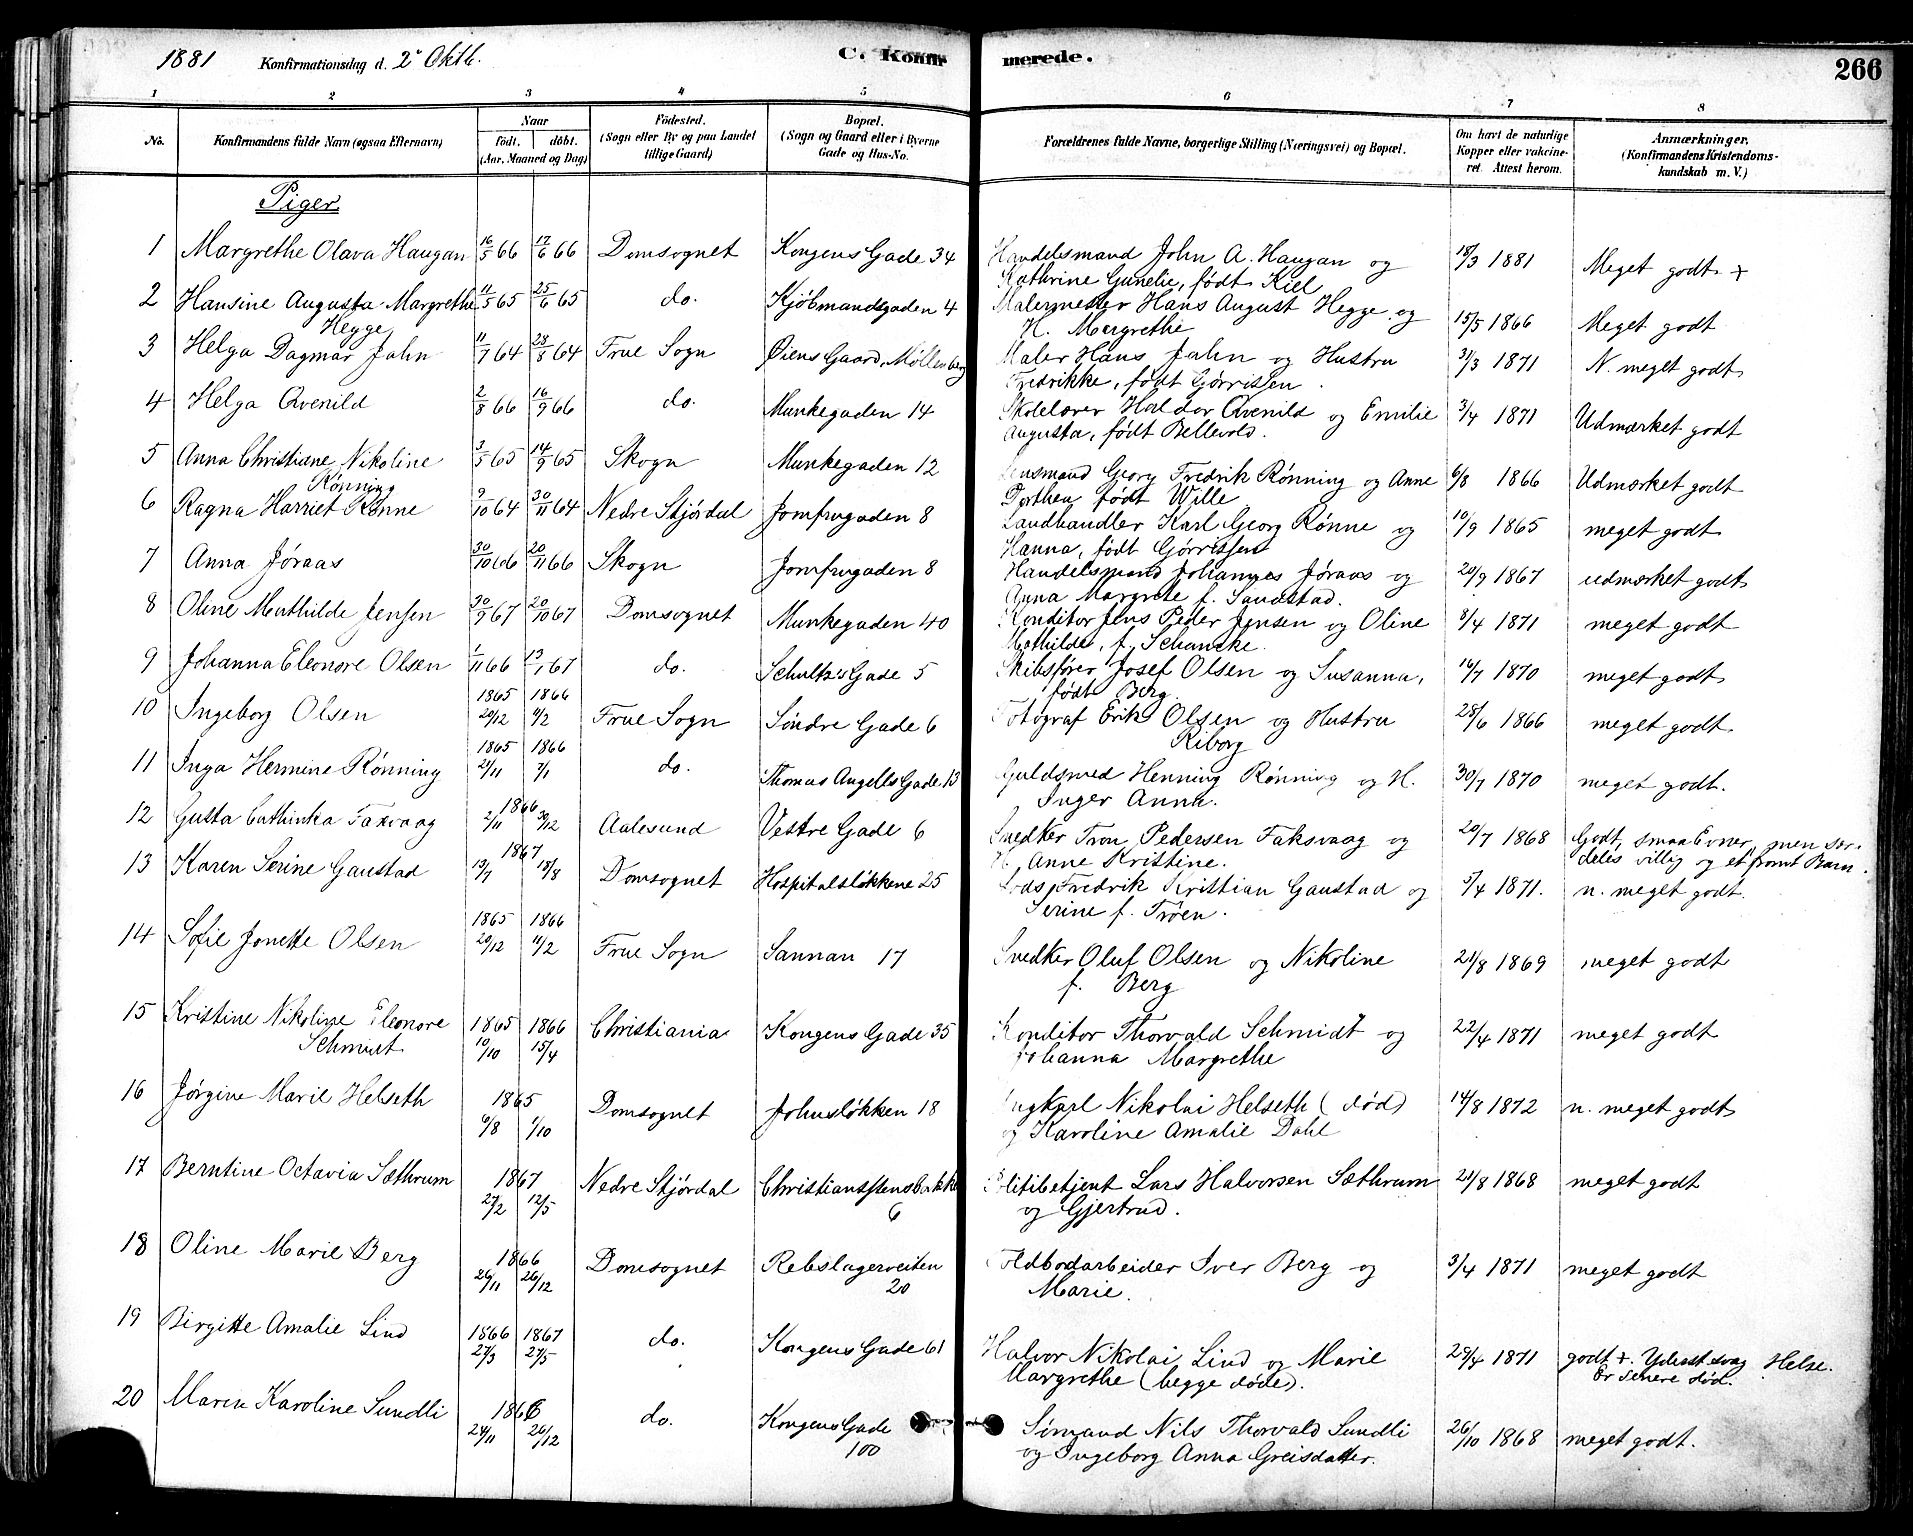 1881 Konfirmationsdag d. 2 Oktb. C. Konfirmerede. 266
1 2 3 4 5 6 7 8
No. Konfirmandens fulde Navn (ogsaa Efternavn) Naar født. døbt. (Aar, Maaned og Dag) Fødested. (Sogn eller By og paa Landet tillige Gaard) Bopæl. (Sogn og Gaard eller i Byerne Gade og Hus-No. Forældrenes fulde Navne, borgerlige Stilling (Næringsvei) og Bopæl. Om havt de naturlige Kopper eller vakcineret. Attest herom. Anmærkninger. (Konfirmandens Kristendomskundskab m. V.)
Piger
1 Margrethe Olava Haugan 16/5 66 17/6 66 Domsognet Kongens Gade 34 Handelsmand John A. Haugan og 18/3 1881 Meget godt +
Kathrine Gunelie, født Kiel
2 Hansine Augusta Margrethe 11/5 65 25/6 65 do. Kjøbmandsgaden 4 Malermester Hans August Hegge og 15/5 1866 Meget godt
Hegge H. Margrethe
3 Helga Dagmar Jahn 11/7 64 28/8 64 Frue Sogn Øiens Gaard, Møllenberg Maler Hans Jahn og Hustru 31/3 1871 N. meget godt
Fredrikke, født Gørrissen.
4 Helga Qvenild 2/8 66 16/9 66 do. Munkegaden 14 Skolelærer Haldor Qvenild og Emilie 3/4 1871 Udmærket godt
Augusta, født Bellevold.
5 Anna Christiane Nikoline 3/5 65 14/9 65 Skogn Munkegaden 12 Lensmand Georg Fredrik Rønning og Anne 6/8 1866 Udmærket godt
Rønning Dorthea født Wille
6 Ragna Harriet Rønne 9/10 64 30/11 64 Nedre Stjørdal Jomfrugaden 8 Landhandler Karl Georg Rønne og 10/9 1865 meget godt
Hanna, født Gørrissen
7 Anna Jøraas 30/10 66 20/11 66 Skogn Jomfrugaden 8 Handelsmand Johannes Jøraas og 20/9 1867 udmærket godt
Anna Margrete f. Sandstad.
8 Oline Mathilde Jensen 30/9 67 20/10 67 Domsognet Munkegaden 40 Konditor Jens Peder Jensen og Oline 8/4 1871 meget godt
Mathilde, f. Schancke.
9 Johanna Eleonore Olsen 1/11 66 13/1 67 do. Schultz's Gade 5 Skibsfører Josef Olsen og Susanna, 16/7 1870 meget godt
født Berg.
10 Ingeborg Olsen 1865 29/12 1866 4/2 Frue Sogn Søndre Gade 6 Fotograf Erik Olsen og Hustru 28/6 1866 meget godt
Riborg
11 Inga Hermine Rønning 1865 21/11 1866 7/1 do. Thomas Angells Gade 13 Guldsmed Henning Rønning og H. 30/7 1870 meget godt.
Inger Anna.
12 Gusta Cathinka Faxvaag 1866 2/11 30/12 Aalesund Vestre Gade 6 Snedker Tron Pedersen Faksvaag og 20/7 1868 Godt, smaa Evner, men sær-
H. Anne Kristine. deles villig og et fromt Barn.
13 Karen Serine Gaustad 1867 13/7 18/8 Domsognet Hospitalsløkkene 25 Lods Fredrik Kristian Gaustad og 5/4 1871. n. meget godt.
Serine f. Trøen.
14 Sofie Jonette Olsen 1865 20/12 1866 11/2 Frue Sogn Sannan 17 Snedker Oluf Olsen og Nikoline 21/8 1869 meget godt
f. Berg
15 Kristine Nikoline Eleonore 1865 10/10 1866 15/4 Christiania Kongens Gade 35 Konditor Thorvald Schmidt og 22/4 1871 meget godt
Schmidt Johanna Margrethe
16 Jørgine Marie Helseth 1865 6/8 1/10 Domsognet Johnsløkken 18 Karl Nikolai Helseth (død) 14/8 1872 n. meget godt
og Karoline Amalie Dahl
17 Berntine Octavia Sæthrum 1867 27/2 12/5 Nedre Stjørdal Christianstensbakke 6 Politibetjent Lars Halvorsen Sæthrum 21/8 1868 meget godt
og Gjertrud.
18 Oline Marie Berg 1866 26/11 26/12 Domsognet Rebslagerveiten 20 Toldbodarbeider Iver Berg og 3/4 1871 meget godt
Marie.
19 Birgitte Amalie Lind 1866 27/3 1867 27/5 do. Kongens Gade 61 Halvor Nikolai Lind og Marie 29/4 1871 godt +. Yderst svag Helse.
Margrethe (begge døde). Er senere død.
20 Maren Karoline Sundli 1866 24/11 26/12 do. Kongens Gade 100 Sømand Nils Thorvald Sundli 26/10 1868 meget godt.
og Ingeborg Anna Greisdatter.